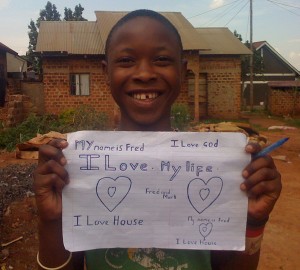 My name is Fred I Love GOD
I Love My life
Fred and Mark
I Love House
My name is Fred
I Love House